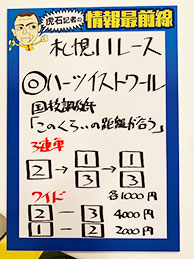 虎石記者の
情報最前線
札幌11レース
◎ハーツイストワール
国枝調教師
「このくらいの距離が合う」
3連単
2 → 1 3 → 1 3
各1000円
ワイド
2 － 3 4000円
1 － 2 2000円